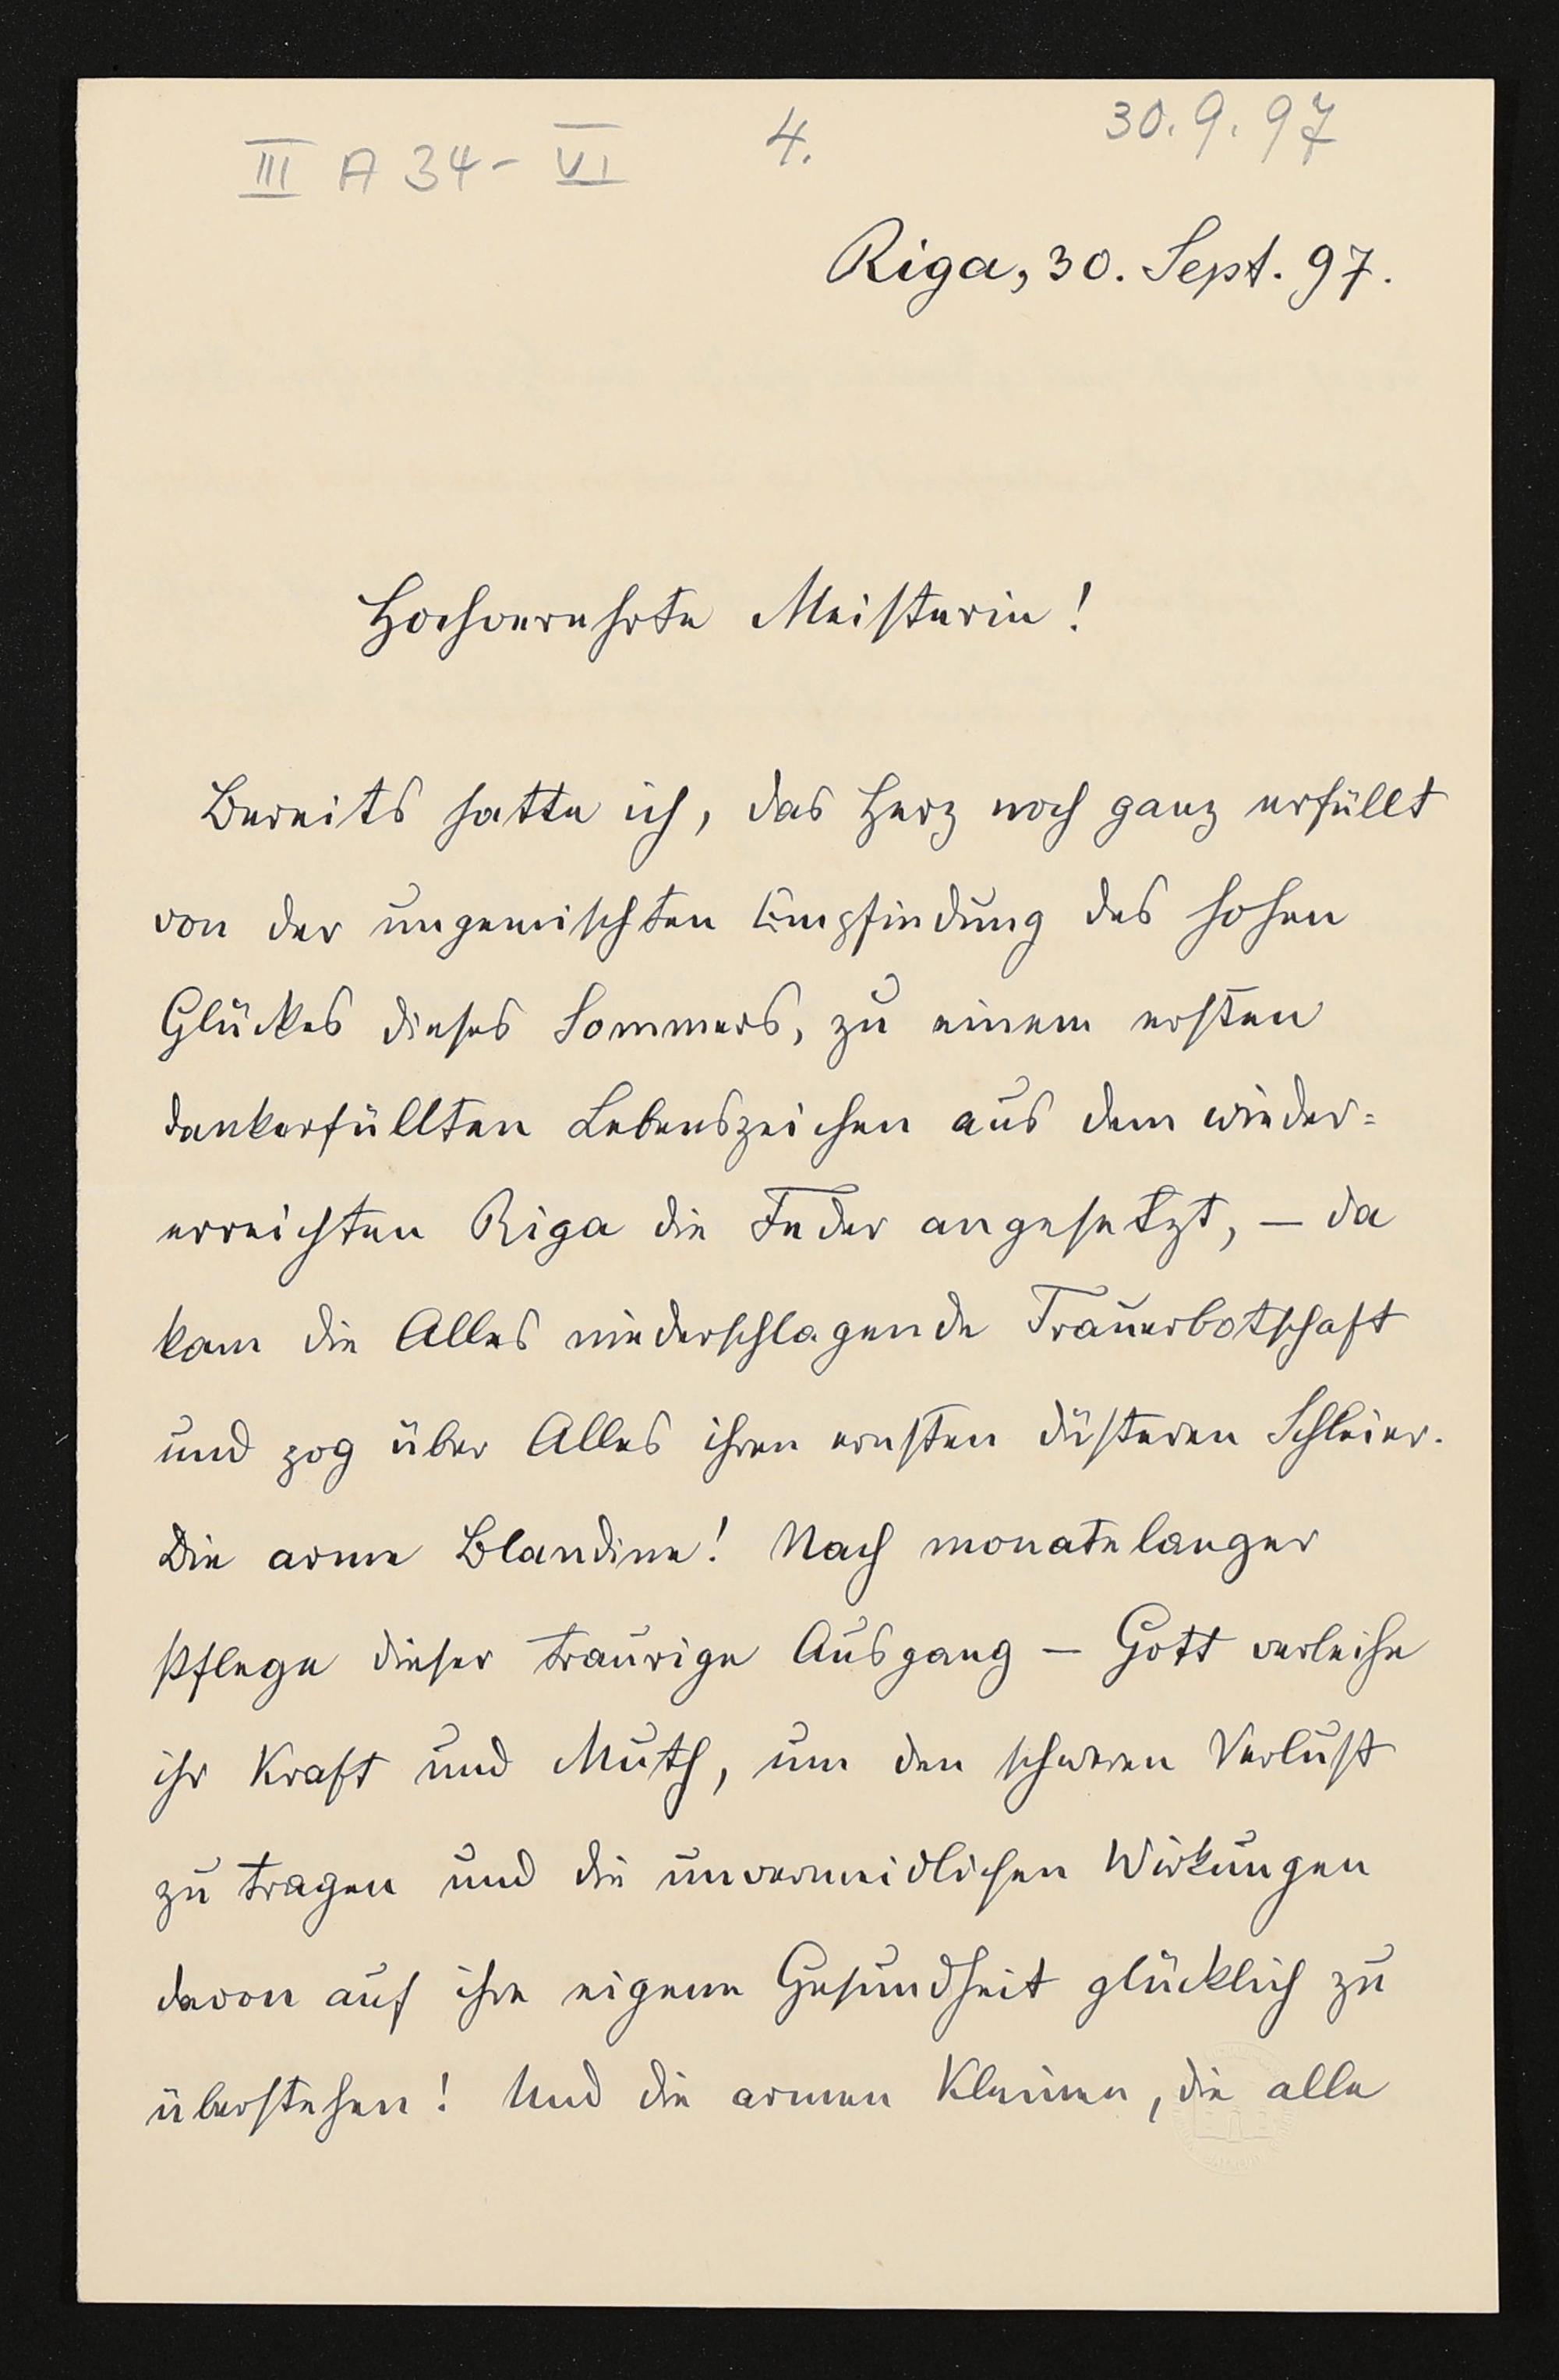 III A 34 - VI 4. 30.9.97
Riga, 30. Sept. 97.
Hochverehrte Meisterin!
Bereits hatte ich, das Herz noch ganz erfüllt
von der ungemischten Empfindung des hohen
Glückes dieses Sommers, zu einem ersten
dankerfüllten Lebenszeichen aus dem wieder=
erreichten Riga die Feder angesetzt, — da
kam die Alles niederschlagende Trauerbotschaft
und zog über Alles ihren ernsten düsteren Schleier.
Die arme Blandine! Nach monatelanger
Pflege dieser traurige Ausgang — Gott verleihe
ihr Kraft und Muth, um den schweren Verlust
zu tragen und die unvermeidlichen Wirkungen
davon auf ihre eigene Gesundheit glücklich zu
überstehen! Und die armen Kleinen, die alle